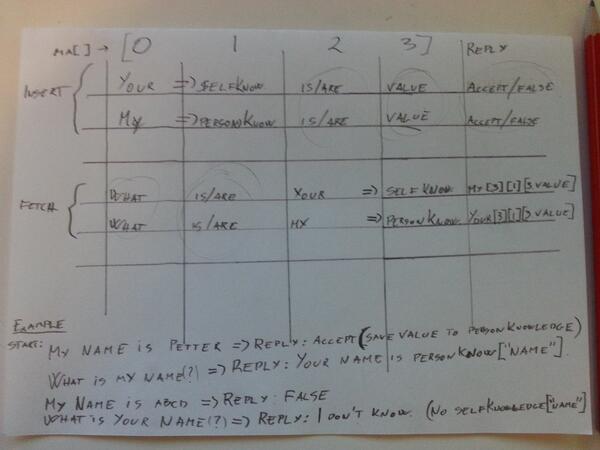 MA[ ] → [0 1 2 3] REPLY
INSERT
YOUR => SELFKNOW IS/ARE VALUE ACCEPT/FALSE
MY => PERSONKNOW IS/ARE VALUE ACCEPT/FALSE
FETCH
WHAT IS/ARE YOUR => SELFKNOW MY[3][1][3.VALUE]
WHAT IS/ARE MY => PERSONKNOW YOUR[3][1][3.VALUE]
EXAMPLE
START: MY NAME IS PETTER => REPLY: ACCEPT (SAVE VALUE TO PERSONKNOWLEDGE)
WHAT IS MY NAME(?) => REPLY: YOUR NAME IS PERSONKNOW["NAME"].
MY NAME IS ABCD => REPLY: FALSE
WHAT IS YOUR NAME(?) => REPLY: I DON'T KNOW. (NO SELFKNOWLEDGE["NAME"]